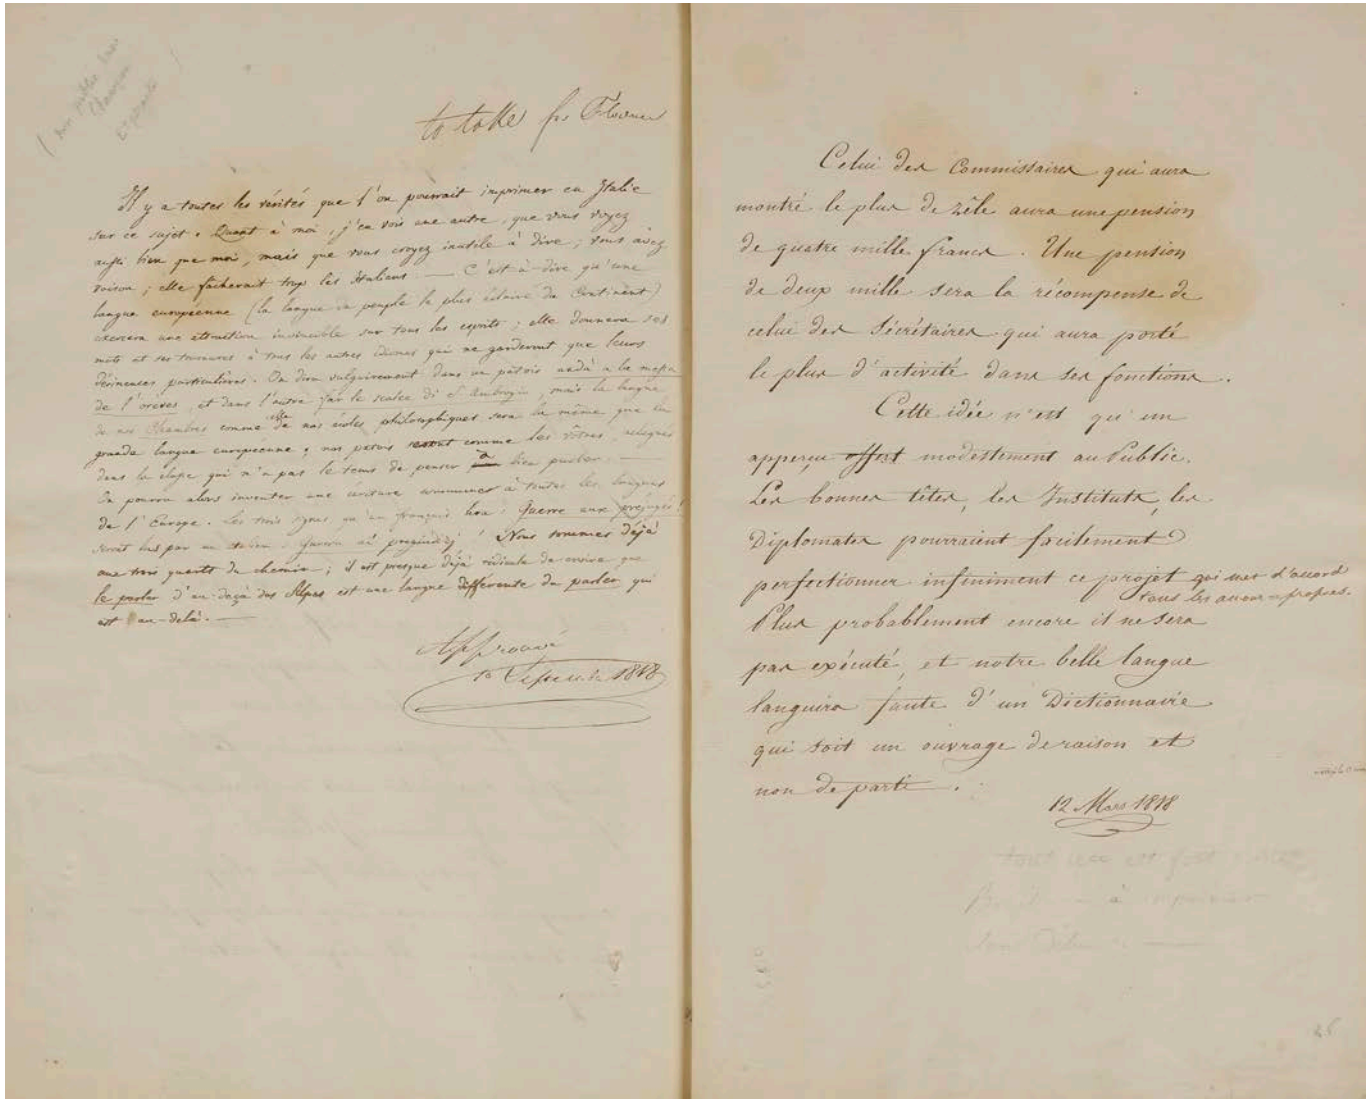 to take for Florence
Il y a toutes les vérités que l'on pourrait imprimer en Italie
sur ce sujet. Quant à moi, j'en vois une autre, que vous voyez
aussi bien que moi, mais que vous croyez inutile à dire ; vous avez
raison ; elle facherait trop les Italiens — C'est-à-dire qu'une
langue européenne (la langue du peuple le plus éclairé du Continent)
exercera une attraction invincible sur tous les esprits ; elle donnera ses
mots et ses tournures à tous les autres idiomes qui ne garderont que leurs
désinences particulières. On dira vulgairement dans un patois andà a la messa
de l'oreves, et dans l'autre far le scalee di S Ambrogio, mais la langue
de nos Chambres comme de nos écoles philosophiques sera la même que la
grande langue européenne ; nos patois seront comme les vôtres, relégués
dans la classe qui n'a pas le tems de penser à bien parler. —
On pourra alors inventer une écriture commune à toutes les langues
de l'Europe. Les trois signes qu'un français lira : Guerre aux préjugés !
seront lus par un italien : Guerra ai pregiudizj ! Nous sommes déjà
aux trois quarts du chemin ; il est presque déjà ridicule de croire que
le parler d'en-deçà des Alpes est une langue différente du parler qui
est au-delà. —
Approuvé
10 1818
Celui des Commissaires qui aura
montré le plus de zèle aura une pension
de quatre mille francs. Une pension
de deux mille sera la récompense de
celui des Sécrétaires qui aura porté
le plus d'activité dans ses fonctions.
Cette idée n'est qu'un
apperçu offert modestement au Public.
Les bonnes têtes, les Instituts, les
Diplomates pourraient facilement
perfectionner infiniment ce projet qui met d'accord
tous les amour-propres.
Plus probablement encore il ne sera
pas exécuté, et notre belle langue
languira faute d'un Dictionnaire
qui soit un ouvrage de raison et
non de parti.
12 Mars 1818
tout ceci est fort